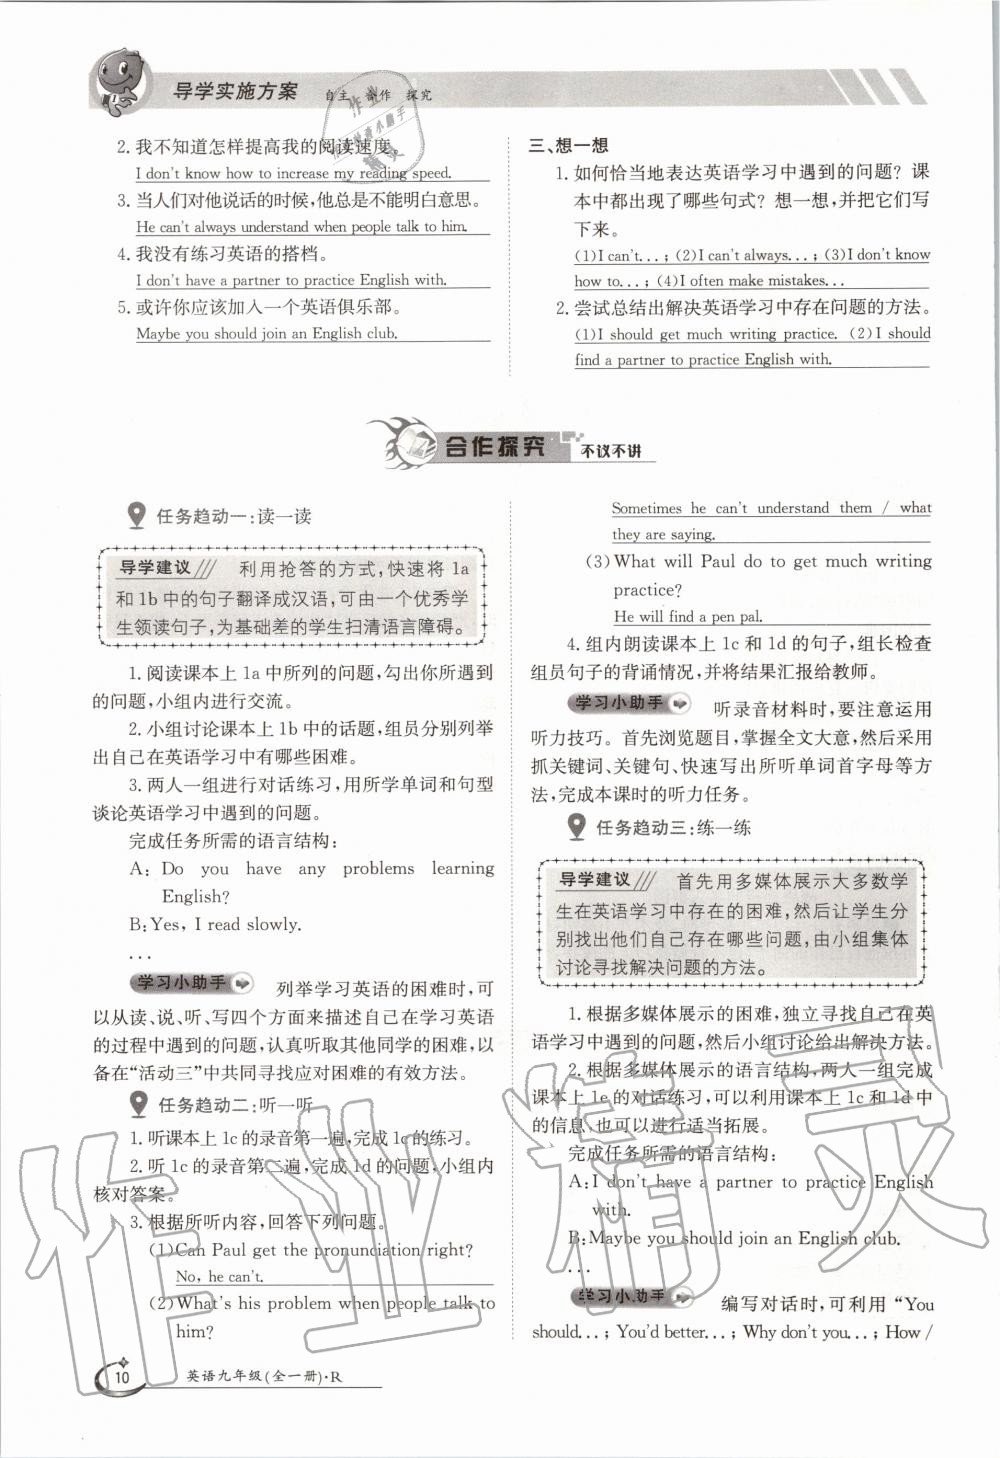 导学实施方案 自主 合作 探究
2. 我不知道怎样提高我的阅读速度。
I don't know how to increase my reading speed.
3. 当人们对他说话的时候,他总是不能明白意思。
He can't always understand when people talk to him.
4. 我没有练习英语的搭档。
I don't have a partner to practice English with.
5. 或许你应该加入一个英语俱乐部。
Maybe you should join an English club.
三、想一想
1. 如何恰当地表达英语学习中遇到的问题? 课
本中都出现了哪些句式? 想一想,并把它们写
下来。
(1)I can't...; (2)I can't always...; (3)I don't know
how to...; (4)I often make mistakes...
2. 尝试总结出解决英语学习中存在问题的方法。
(1)I should get much writing practice. (2)I should
find a partner to practice English with.
合作探究 不议不讲
任务趋动一:读一读
导学建议 利用抢答的方式,快速将 1a
和 1b 中的句子翻译成汉语,可由一个优秀学
生领读句子,为基础差的学生扫清语言障碍。
1. 阅读课本上 1a 中所列的问题,勾出你所遇到
的问题,小组内进行交流。
2. 小组讨论课本上 1b 中的话题,组员分别列举
出自己在英语学习中有哪些困难。
3. 两人一组进行对话练习,用所学单词和句型
谈论英语学习中遇到的问题。
完成任务所需的语言结构:
A: Do you have any problems learning
English?
B:Yes, I read slowly.
...
学习小助手 列举学习英语的困难时,可
以从读、说、听、写四个方面来描述自己在学习英语
的过程中遇到的问题,认真听取其他同学的困难,以
备在“活动三”中共同寻找应对困难的有效方法。
任务趋动二:听一听
1. 听课本上 1c 的录音第一遍,完成 1c 的练习。
2. 听 1c 的录音第二遍,完成 1d 的问题,小组内
核对答案。
3. 根据所听内容,回答下列问题。
(1)Can Paul get the pronunciation right?
No, he can't.
(2)What's his problem when people talk to
him?
Sometimes he can't understand them / what
they are saying.
(3)What will Paul do to get much writing
practice?
He will find a pen pal.
4. 组内朗读课本上 1c 和 1d 的句子,组长检查
组员句子的背诵情况,并将结果汇报给教师。
学习小助手 听录音材料时,要注意运用
听力技巧。首先浏览题目,掌握全文大意,然后采用
抓关键词、关键句、快速写出所听单词首字母等方
法,完成本课时的听力任务。
任务趋动三:练一练
导学建议 首先用多媒体展示大多数学
生在英语学习中存在的困难,然后让学生分
别找出他们自己存在哪些问题,由小组集体
讨论寻找解决问题的方法。
1. 根据多媒体展示的困难,独立寻找自己在英
语学习中遇到的问题,然后小组讨论给出解决方法。
2. 根据多媒体展示的语言结构,两人一组完成
课本上 1e 的对话练习,可以利用课本上 1c 和 1d 中
的信息,也可以进行适当拓展。
完成任务所需的语言结构:
A:I don't have a partner to practice English
with.
B:Maybe you should join an English club.
...
学习小助手 编写对话时,可利用“You
should...; You'd better...; Why don't you...; How /
10 英语九年级(全一册)·R
作业精灵